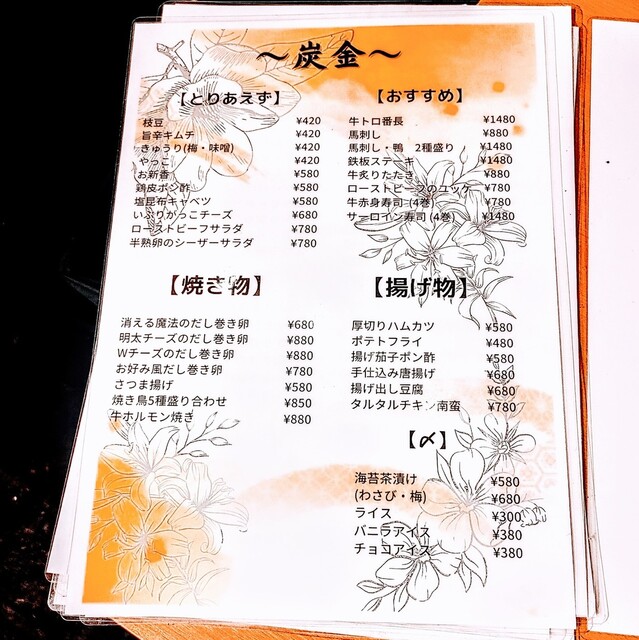 ～炭金～
【とりあえず】
枝豆 ¥420
旨辛キムチ ¥420
きゅうり(梅・味噌) ¥420
やっこ ¥420
お新香 ¥580
鶏皮ポン酢 ¥580
塩昆布キャベツ ¥580
いぶりがっこチーズ ¥680
ローストビーフサラダ ¥780
半熟卵のシーザーサラダ ¥780
【おすすめ】
牛トロ番長 ¥1480
馬刺し ¥880
馬刺し・鴨 2種盛り ¥1480
鉄板ステーキ ¥1480
牛炙りたたき ¥880
ローストビーフのユッケ ¥780
牛赤身寿司 (4巻) ¥780
サーロイン寿司 (4巻) ¥1480
【焼き物】
消える魔法のだし巻き卵 ¥680
明太チーズのだし巻き卵 ¥880
Wチーズのだし巻き卵 ¥880
お好み風だし巻き卵 ¥780
さつま揚げ ¥580
焼き鳥5種盛り合わせ ¥850
牛ホルモン焼き ¥880
【揚げ物】
厚切りハムカツ ¥580
ポテトフライ ¥480
揚げ茄子ポン酢 ¥580
手仕込み唐揚げ ¥680
揚げ出し豆腐 ¥680
タルタルチキン南蛮 ¥780
【〆】
海苔茶漬け ¥580
(わさび・梅) ¥680
ライス ¥300
バニラアイス ¥380
チョコアイス ¥380